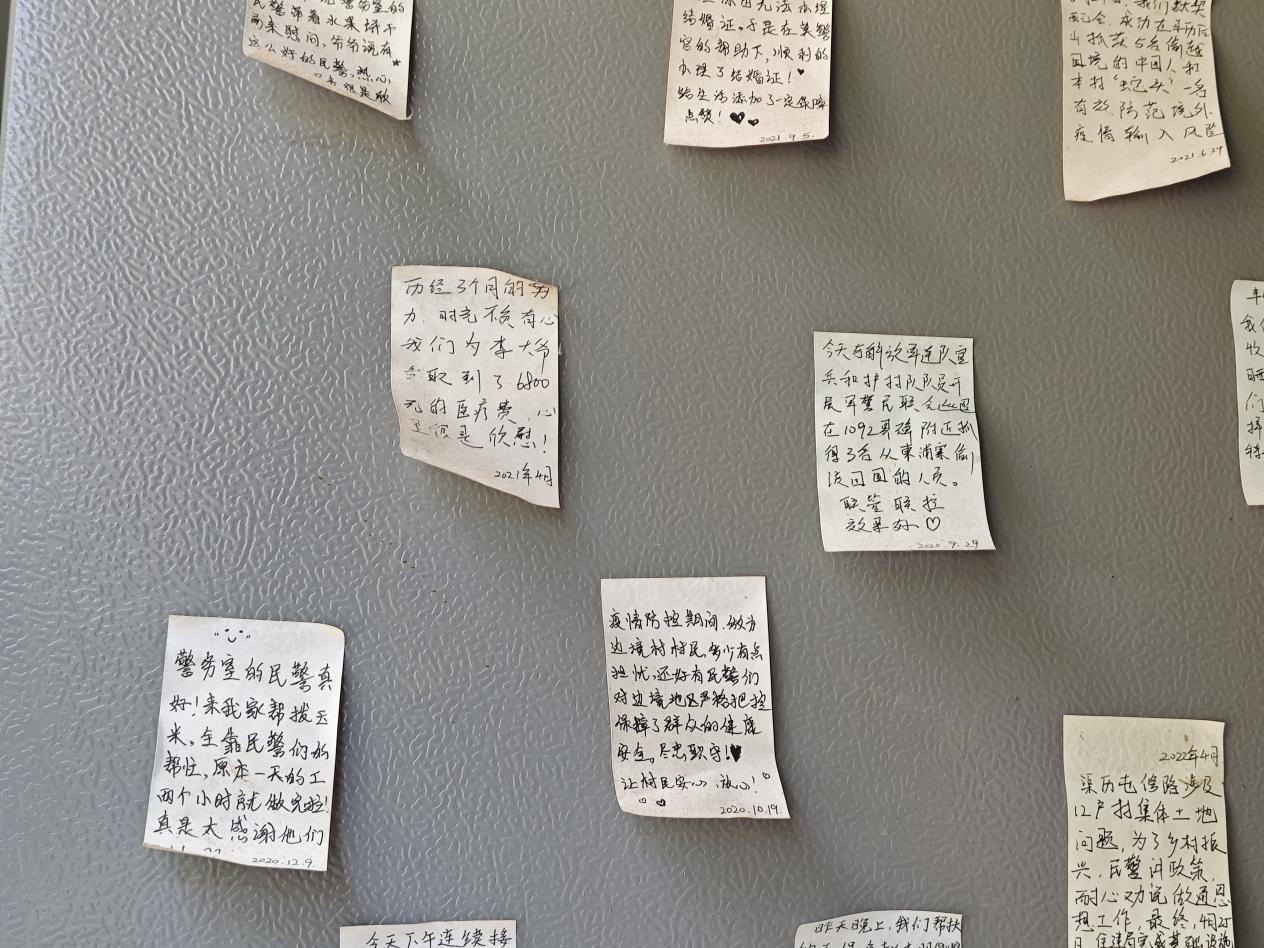 民警带着水果饼干
前来慰问，爷爷说有
这么好的民警，热心
很是歌
结婚证。于是在吴警
官的帮助下，顺利的
办理了结婚证！
给生活添加了一定保障
点赞！
2021.9.5.
配合，成功在弄历后
山抓获5名偷越
国境的中国人和
本村“蛇头”一名
有效防范境外
疫情输入风险
2021.6.29
历经3个月的努
力，时光不负有心
我们为李大爷
争取到了6800
元的医疗费，心
里很是欣慰！
2021年4月
今天与解放军连队官
兵和护村队队员开
展军警民联合巡逻
在1092界碑附近抓
得3名从柬浦寨偷
渡回国的人员。
联管联控
效果好♡
2020.9.29
疫情防控期间，做为
边境村村民，多少有点
担忧，还好有民警们
对边境地区严格把控
保障了群众的健康
安全，尽忠职守！
让村民安心、放心！
2020.10.19.
警务室的民警真
好！来我家帮拨玉
米，全靠民警们的
帮忙，原本一天的工
两个小时就做完啦！
真是太感谢他们
2020.12.9.
2022年4月
渠历屯修路涉及
12户村集体土地
问题，为了乡村振
兴，民警讲政策，
耐心劝说做通思
想工作，最终，
今天下午连续接
昨天晚上，我们帮扶